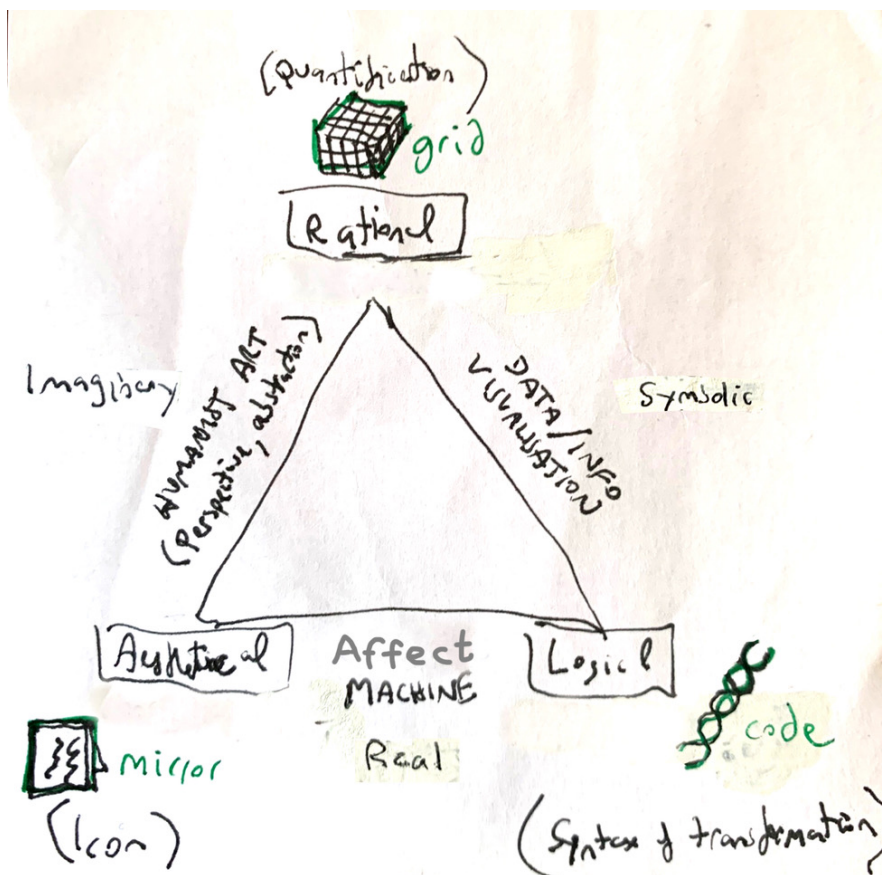 (Quantification)
grid
Rational
Imaginary
HUMANIST ART
(Perspective, abstraction)
DATA/INFO
VISUALISATION
Symbolic
Aesthetical
Affect
MACHINE
Real
Logical
mirror
(Icon)
code
(Syntax of transformation)